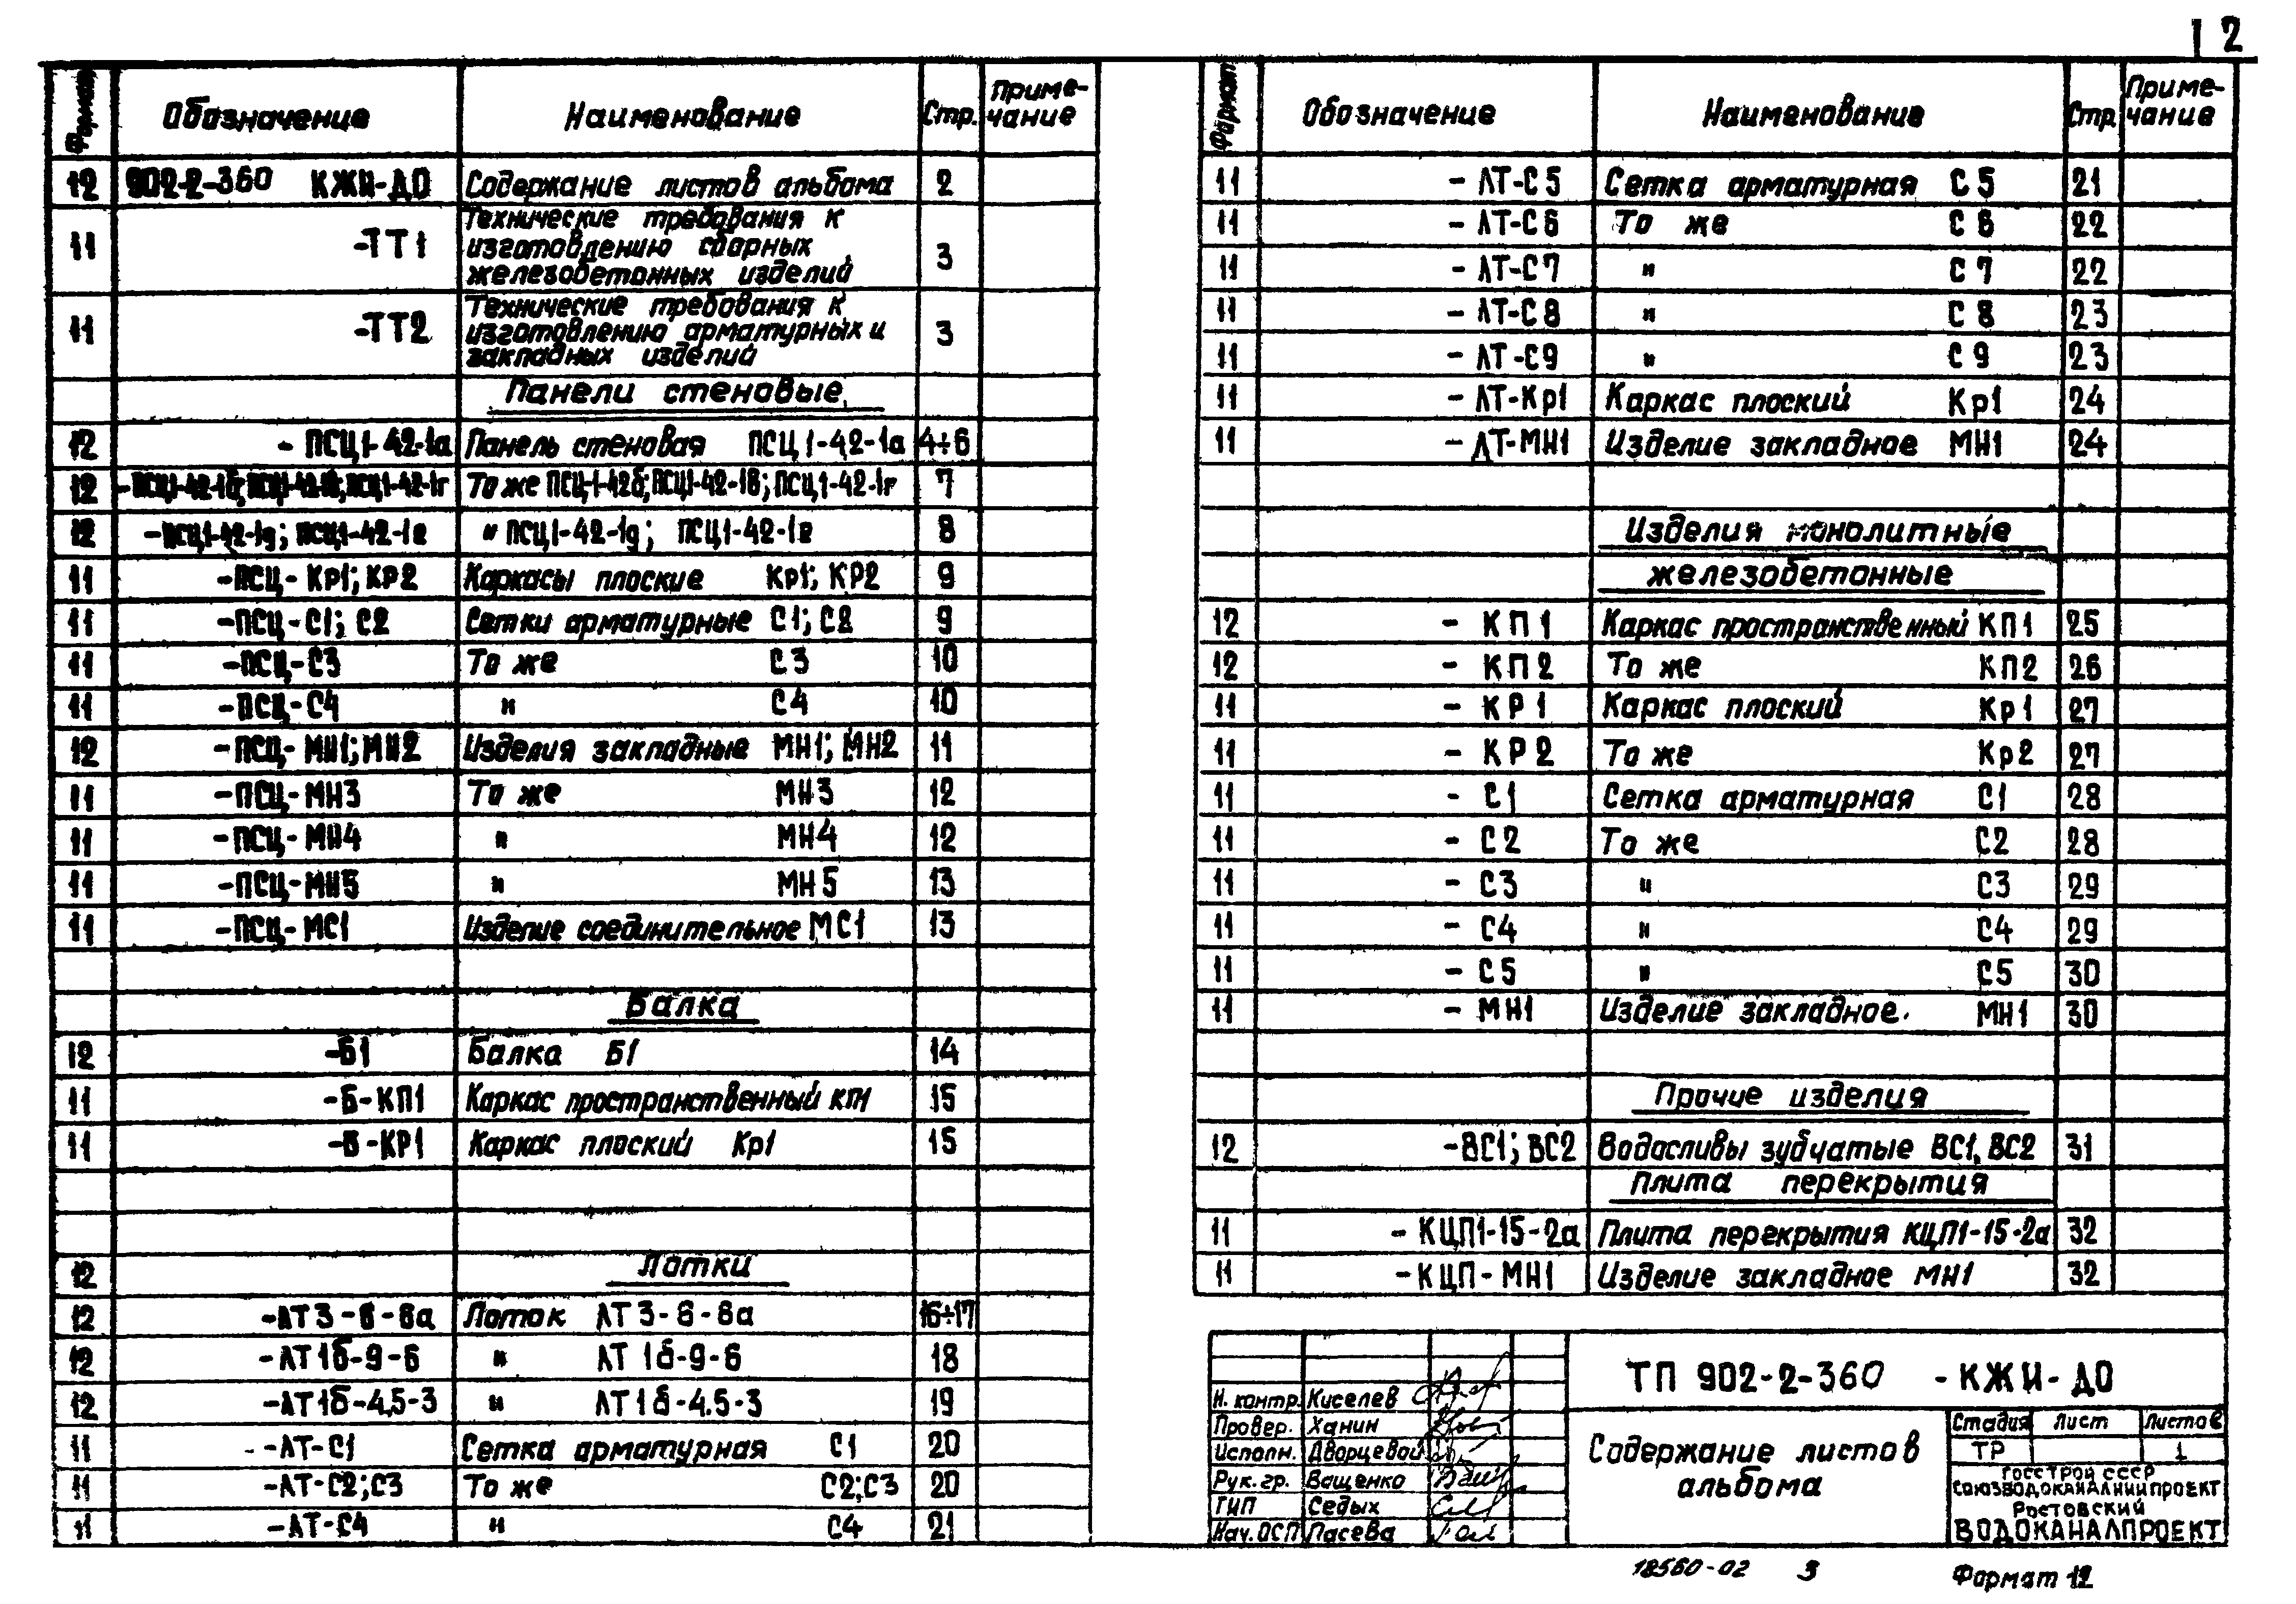 2
Формат Обозначение Наименование Стр. Приме-чание
12 902-2-360 КЖИ-ДО Содержание листов альбома 2
11 -ТТ1 Технические требования к
изготовлению сборных
железобетонных изделий 3
11 -ТТ2 Технические требования к
изготовлению арматурных и
закладных изделий 3
Панели стеновые
12 - ПСЦ1-42-1а Панель стеновая ПСЦ1-42-1а 4÷6
12 -ПСЦ1-42-1б; ПСЦ1-42-1в; ПСЦ1-42-1г То же ПСЦ-1-42б; ПСЦ1-42-1в; ПСЦ1-42-1г 7
12 -ПСЦ1-42-1д; ПСЦ1-42-1е " ПСЦ1-42-1д; ПСЦ1-42-1е 8
11 -ПСЦ-Кр1; КР2 Каркасы плоские Кр1; КР2 9
11 -ПСЦ-С1; С2 Сетки арматурные С1; С2 9
11 -ПСЦ-С3 То же С3 10
11 -ПСЦ-С4 " С4 10
12 -ПСЦ-МН1; МН2 Изделия закладные МН1; МН2 11
11 -ПСЦ-МН3 То же МН3 12
11 -ПСЦ-МН4 " МН4 12
11 -ПСЦ-МН5 " МН5 13
11 -ПСЦ-МС1 Изделие соединительное МС1 13
Балка
12 -Б1 Балка Б1 14
11 -Б-КП1 Каркас пространственный КП1 15
11 -Б-КР1 Каркас плоский Кр1 15
12 Лотки
12 -ЛТ3-6-8а Лоток ЛТ3-6-8а 16÷17
12 -ЛТ1б-9-6 " ЛТ1б-9-6 18
12 -ЛТ1б-4,5-3 " ЛТ1б-4.5-3 19
11 -ЛТ-С1 Сетка арматурная С1 20
11 -ЛТ-С2;С3 То же С2;С3 20
11 -ЛТ-С4 " С4 21
Формат Обозначение Наименование Стр Приме-чание
11 - ЛТ-С5 Сетка арматурная С5 21
11 - ЛТ-С6 То же С6 22
11 - ЛТ-С7 " С7 22
11 - ЛТ-С8 " С8 23
11 - ЛТ-С9 " С9 23
11 - ЛТ-Кр1 Каркас плоский Кр1 24
11 - ЛТ-МН1 Изделие закладное МН1 24
Изделия монолитные
железобетонные
12 - КП1 Каркас пространственный КП1 25
12 - КП2 То же КП2 26
11 - КР1 Каркас плоский Кр1 27
11 - КР2 То же Кр2 27
11 - С1 Сетка арматурная С1 28
11 - С2 То же С2 28
11 - С3 " С3 29
11 - С4 " С4 29
11 - С5 " С5 30
11 - МН1 Изделие закладное. МН1 30
Прочие изделия
12 -ВС1; ВС2 Водосливы зубчатые ВС1, ВС2 31
Плита перекрытия
11 - КЦП1-15-2а Плита перекрытия КЦП1-15-2а 32
11 -КЦП-МН1 Изделие закладное МН1 32
ТП 902-2-360 -КЖИ-ДО
Н. контр. Киселев
Провер. Ханин
Исполн. Дворцевой
Рук. гр. Ващенко
ГИП Седых
Нач. ОСП Пасева
Содержание листов
альбома
Стадия Лист Листов
ТР 1
ГОССТРОЙ СССР
СОЮЗВОДОКАНАЛНИИПРОЕКТ
Ростовский
ВОДОКАНАЛПРОЕКТ
18560-02 3 Формат 12